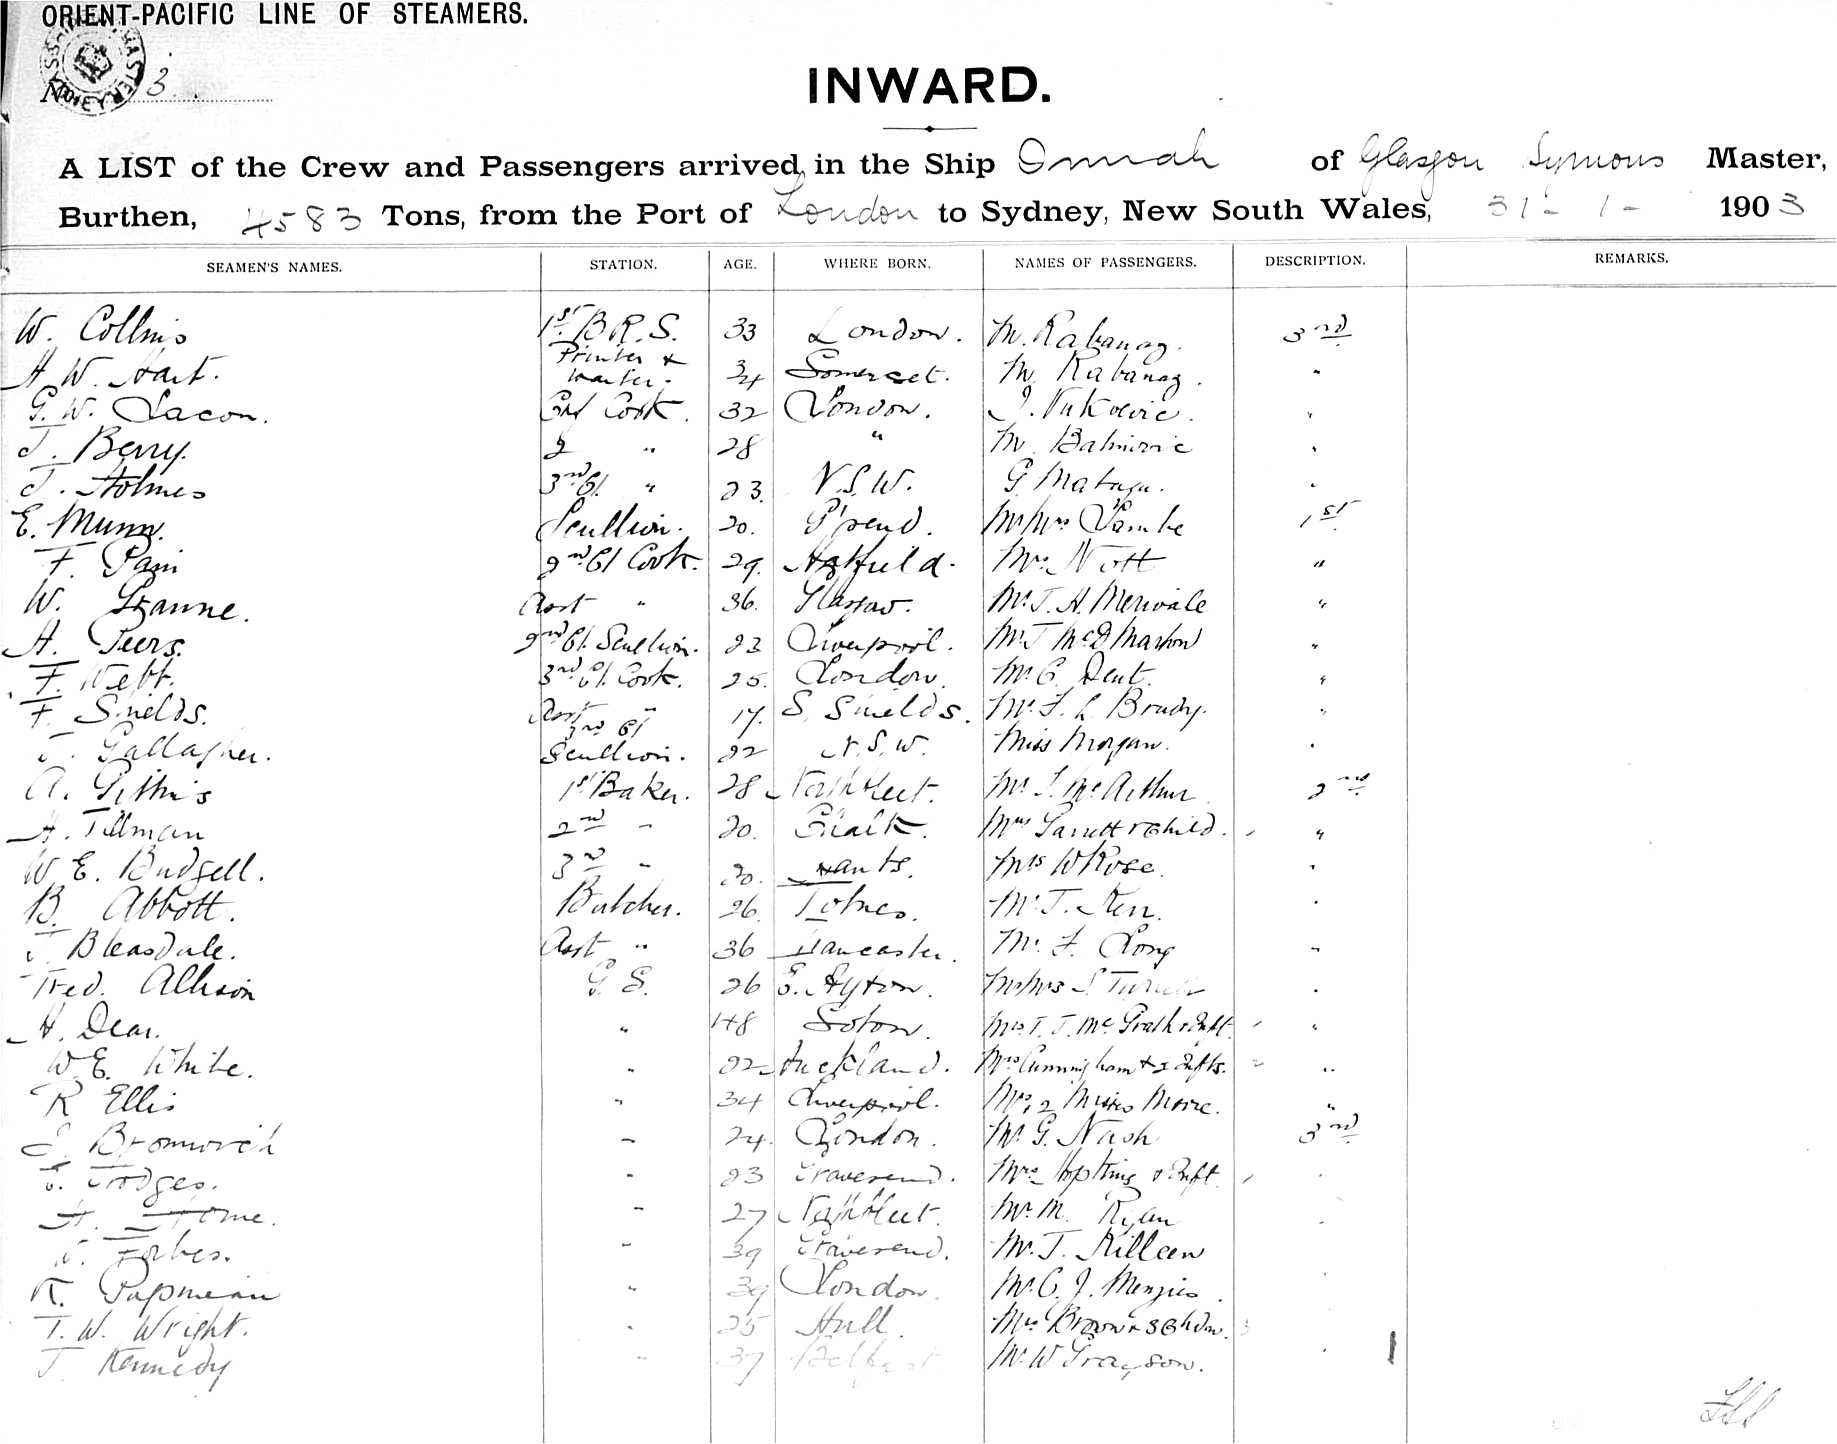 ORIENT-PACIFIC LINE OF STEAMERS.
No. 3
INWARD.
A LIST of the Crew and Passengers arrived in the Ship Ormah of Glasgow Symons Master,
Burthen, 4583 Tons, from the Port of London to Sydney, New South Wales, 31-1-1903
SEAMEN'S NAMES. STATION. AGE. WHERE BORN. NAMES OF PASSENGERS. DESCRIPTION. REMARKS.
W. Collins 1st B.R.S. 33 London. M. Rabanag. 3rd
H W. Hart. Printer & Waiter. 34 Somerset. M. Rabanag. "
G. W. Lacon. Cook. 32 London. J. Vukovic. "
J. Berry. 2 " 28 " M. "
J. Holmes 3rd Cl. " 23. N.S.W. G. "
E. Munn. Scullion. 20. G'send. Mr Mrs Lambe 1st
F. Pain 2nd Cl Cook. 29. Mrs. Nott "
W. Asst " 36. Glasgow. Mr. J. H. Merivale "
H. Peers. 2nd Cl. Scullion. 23 Liverpool. Mr J McD "
F. Webb. 3rd Cl. Cook. 25. London. Mr C. Dent. "
F. Shields. Asst " 17. S. Shields. Mr. F. L Brady. "
J. Gallagher. 3rd Cl Scullion. 22 N.S.W. Miss Morgan. "
A. Gittins 1st Baker. 28 Northfleet. Mr. J. McArthur 2nd
H. Tillman 2nd " 20. Chalk. Mrs Garrett & Child. "
W. E. Budgell. 3rd " 20. Hants. Mrs W Rose. "
B. Abbott. Butcher. 26. Totnes. Mr J. Kerr. "
J. Bleasdale. Asst " 36 Lancaster. Mr. F. Long "
Fred. Allison G. S. 26 G. Ayton. Mr Mrs S. "
H. Dear. " 48 Soton. Mrs. T. J. McGrath & Inft. "
W. E. White. " 22 Auckland. Mrs Cunningham & 2 Infts. "
R Ellis " 34 Liverpool. Mrs, 2 Misses "
Bromwich " 24. London. Mr. G. Nash 3rd
" 23 Gravesend. Mrs Hopkins & Inft. "
H. " 27 Northfleet. Mr. M. Ryan "
Forbes. " 39 Gravesend. Mr. J. Killeen
R. " 39 London. Mr. C. J. Menzies. "
T. W. Wright. " 25 Hull. Mrs Brown & 3 Chdn. 3 "
J. Kennedy " 37 Belfast Mr. W Grayson. "